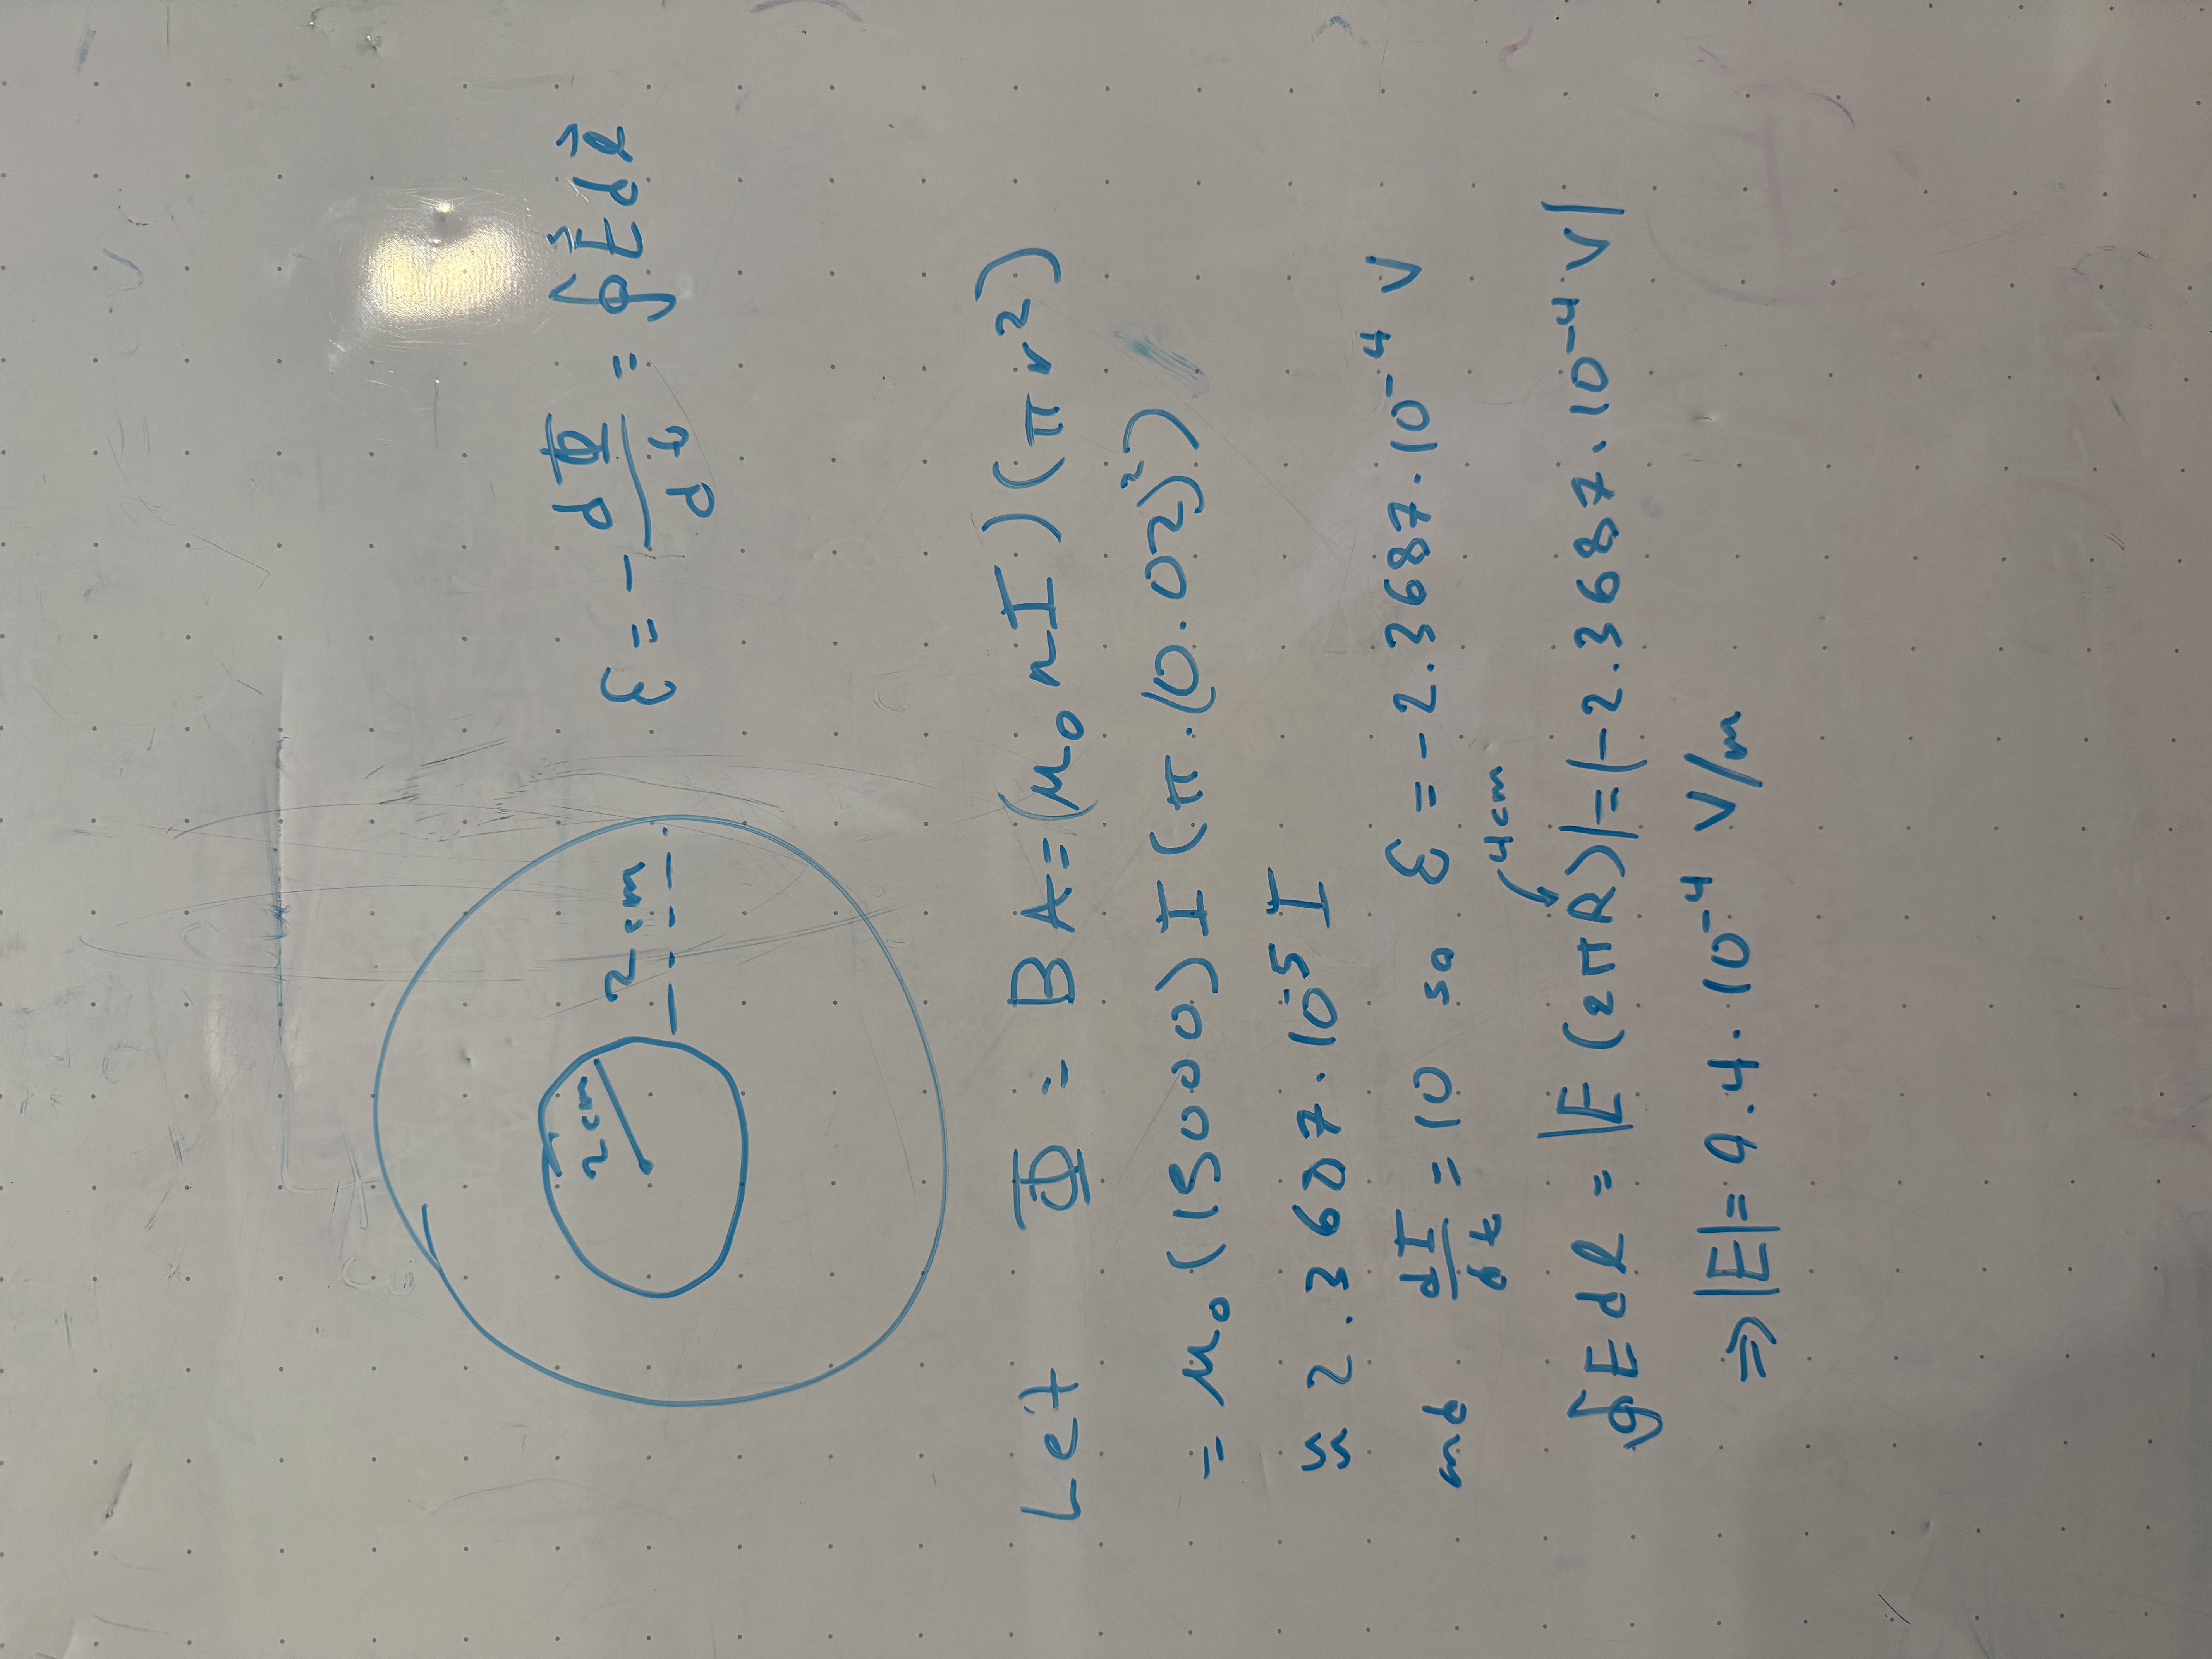 2cm
2cm
ε = - dΦ/dt = ∮E⃗ dℓ⃗
Let Φ = BA = (μ₀ n I)(π r²)
= μ₀ (15000) I (π · (0.02)²)
≈ 2.3687 · 10⁻⁵ I
and dI/dt = 10 so ε = -2.3687 · 10⁻⁴ V
4cm
∮E dℓ = |E (2πR)| = |-2.3687 · 10⁻⁴ V|
⇒ |E| = 9.4 · 10⁻⁴ V/m